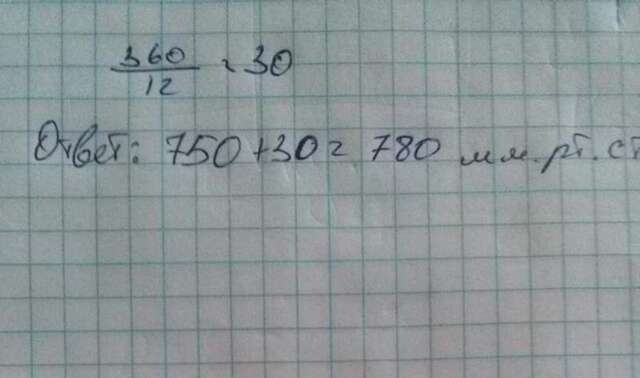 360
12 = 30
Ответ: 750+30= 780 мм.рт.ст